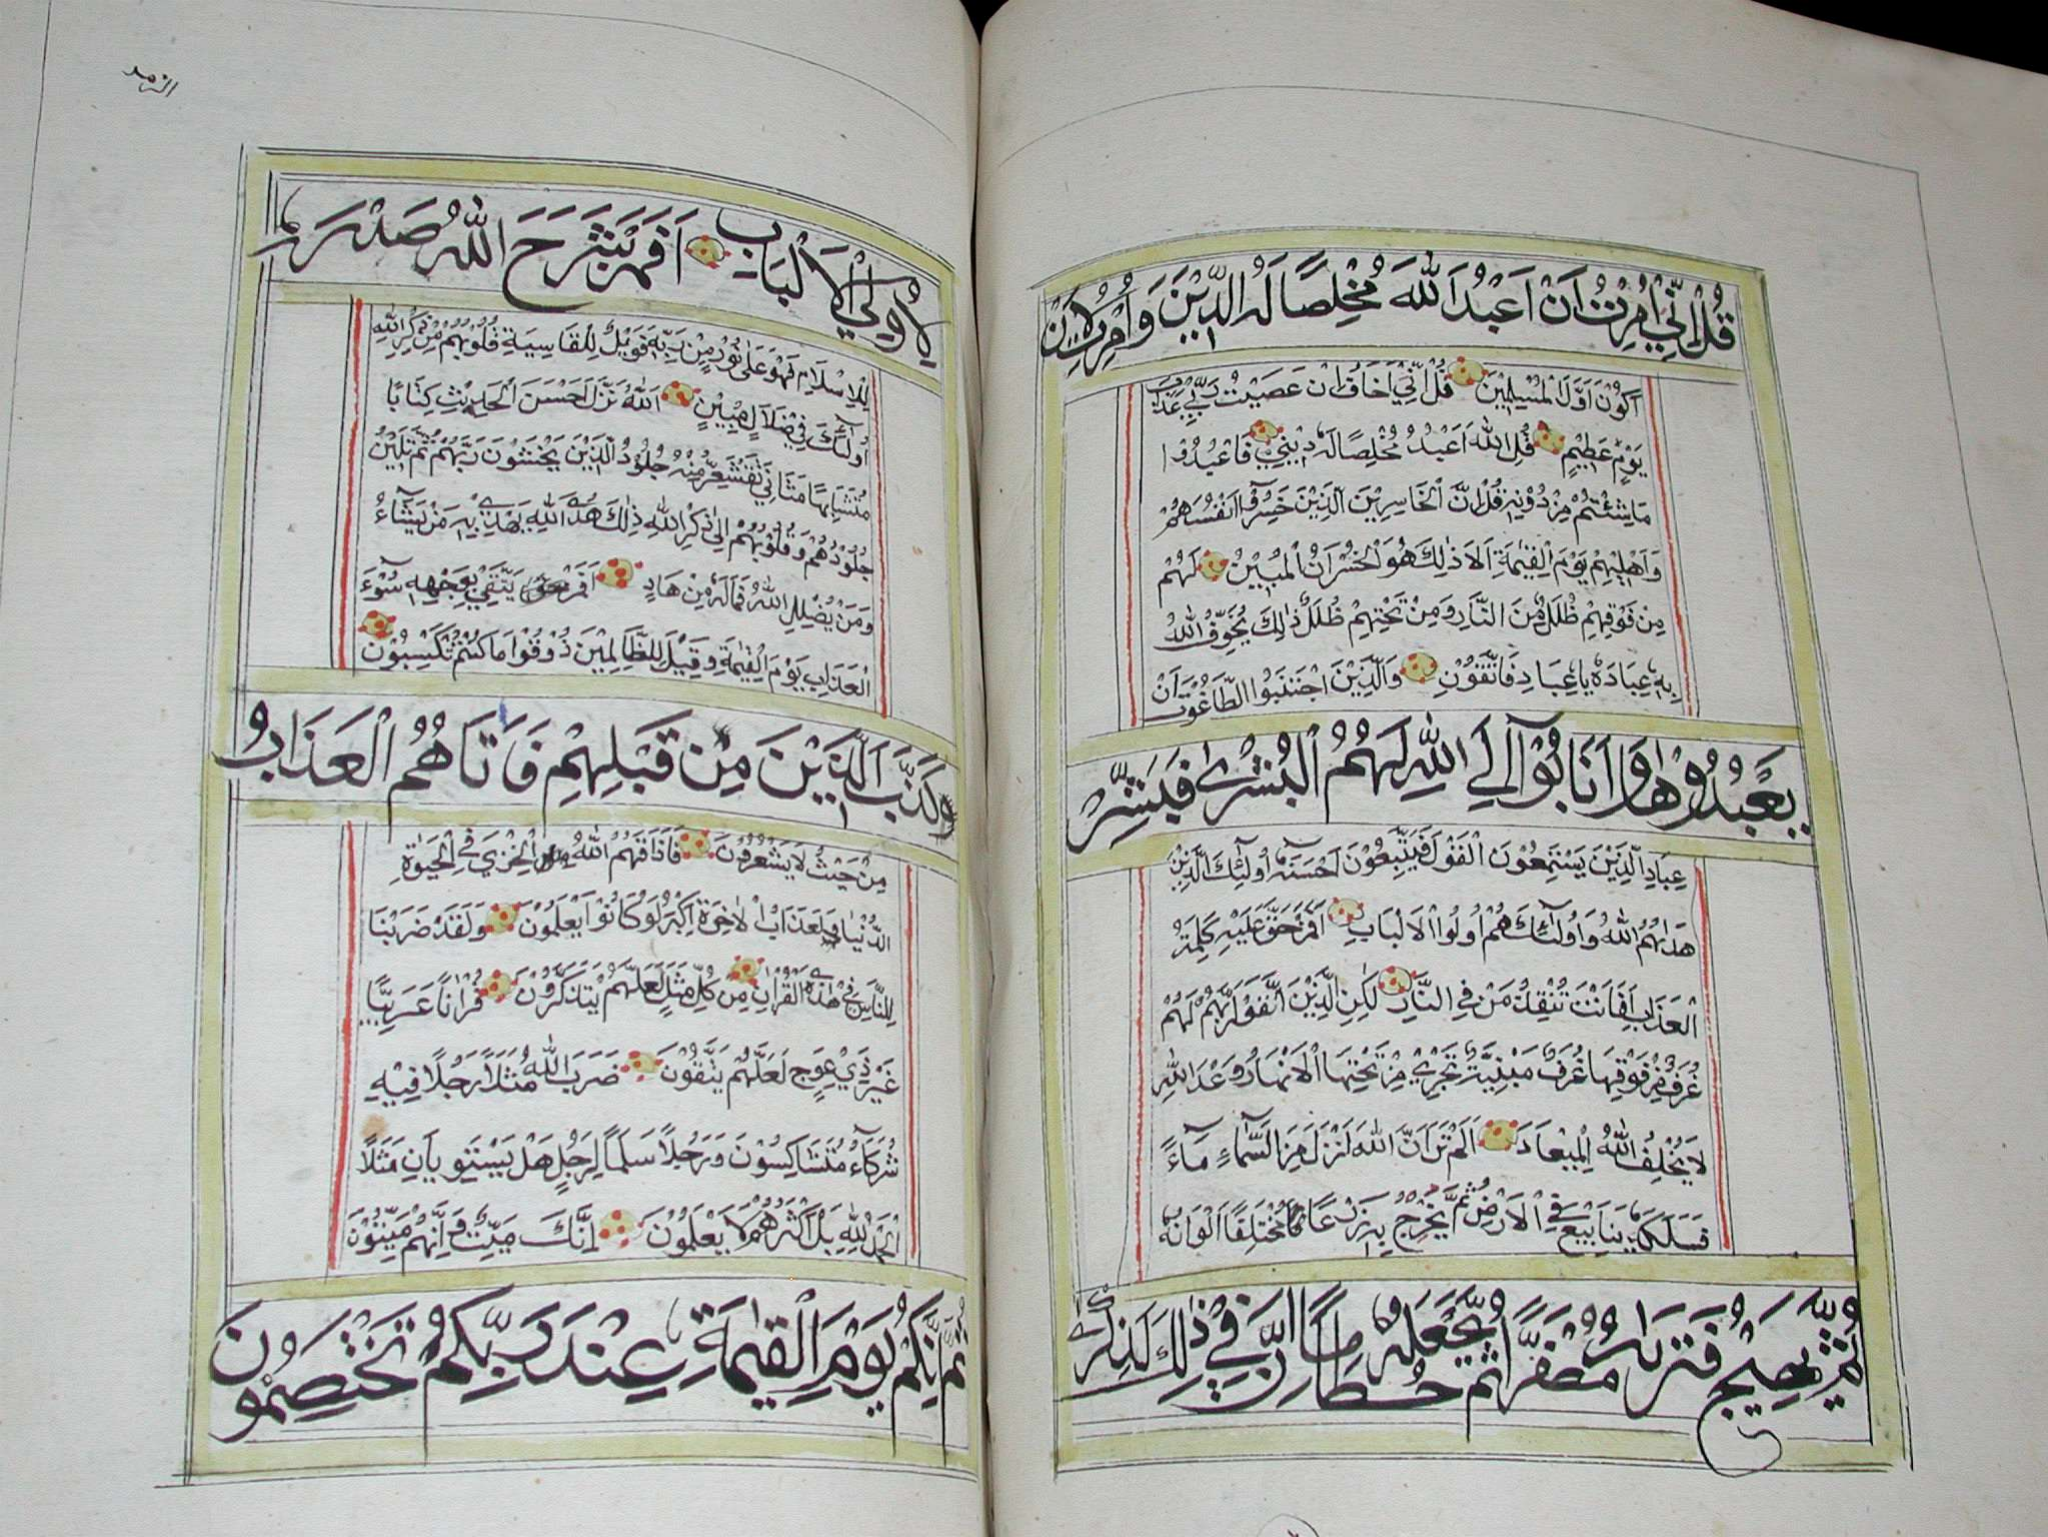 قُلْ اِنِّيْ اُمِرْتُ اَنْ اَعْبُدَ اللّٰهَ مُخْلِصًا لَهُ الدِّيْنَ وَاُمِرْتُ لِاَنْ
اَكُوْنَ اَوَّلَ الْمُسْلِمِيْنَ قُلْ اِنِّيْ اَخَافُ اِنْ عَصَيْتُ رَبِّيْ عَذَابَ
يَوْمٍ عَظِيْمٍ قُلِ اللّٰهَ اَعْبُدُ مُخْلِصًا لَهُ دِيْنِيْ فَاعْبُدُوْا
مَا شِئْتُمْ مِنْ دُوْنِهِ قُلْ اِنَّ الْخَاسِرِيْنَ الَّذِيْنَ خَسِرُوْا اَنْفُسَهُمْ
وَاَهْلِيْهِمْ يَوْمَ الْقِيٰمَةِ اَلَا ذٰلِكَ هُوَ الْخُسْرَانُ الْمُبِيْنُ لَهُمْ
مِنْ فَوْقِهِمْ ظُلَلٌ مِنَ النَّارِ وَمِنْ تَحْتِهِمْ ظُلَلٌ ذٰلِكَ يُخَوِّفُ اللّٰهُ
بِهِ عِبَادَهُ يَا عِبَادِ فَاتَّقُوْنِ وَالَّذِيْنَ اجْتَنَبُوا الطَّاغُوْتَ اَنْ
يَعْبُدُوْهَا وَاَنَابُوْآ اِلَى اللّٰهِ لَهُمُ الْبُشْرٰى فَبَشِّرْ
عِبَادِ الَّذِيْنَ يَسْتَمِعُوْنَ الْقَوْلَ فَيَتَّبِعُوْنَ اَحْسَنَهُ اُولٰٓئِكَ الَّذِيْنَ
هَدٰىهُمُ اللّٰهُ وَاُولٰٓئِكَ هُمْ اُولُوا الْاَلْبَابِ اَفَمَنْ حَقَّ عَلَيْهِ كَلِمَةُ
الْعَذَابِ اَفَاَنْتَ تُنْقِذُ مَنْ فِي النَّارِ لٰكِنِ الَّذِيْنَ اتَّقَوْا رَبَّهُمْ لَهُمْ
غُرَفٌ مِنْ فَوْقِهَا غُرَفٌ مَبْنِيَّةٌ تَجْرِيْ مِنْ تَحْتِهَا الْاَنْهَارُ وَعْدَ اللّٰهِ
لَا يُخْلِفُ اللّٰهُ الْمِيْعَادَ اَلَمْ تَرَ اَنَّ اللّٰهَ اَنْزَلَ مِنَ السَّمَآءِ مَآءً
فَسَلَكَهُ يَنَابِيْعَ فِي الْاَرْضِ ثُمَّ يُخْرِجُ بِهِ زَرْعًا مُخْتَلِفًا اَلْوَانُهُ
ثُمَّ يَهِيْجُ فَتَرٰىهُ مُصْفَرًّا ثُمَّ يَجْعَلُهُ حُطَامًا اِنَّ فِيْ ذٰلِكَ لَذِكْرٰى
الزمر
لِاُولِي الْاَلْبَابِ اَفَمَنْ شَرَحَ اللّٰهُ صَدْرَهُ
لِلْاِسْلَامِ فَهُوَ عَلٰى نُوْرٍ مِنْ رَبِّهِ فَوَيْلٌ لِلْقَاسِيَةِ قُلُوْبُهُمْ مِنْ ذِكْرِ اللّٰهِ
اُولٰٓئِكَ فِيْ ضَلَالٍ مُبِيْنٍ اَللّٰهُ نَزَّلَ اَحْسَنَ الْحَدِيْثِ كِتَابًا
مُتَشَابِهًا مَثَانِيَ تَقْشَعِرُّ مِنْهُ جُلُوْدُ الَّذِيْنَ يَخْشَوْنَ رَبَّهُمْ ثُمَّ تَلِيْنُ
جُلُوْدُهُمْ وَقُلُوْبُهُمْ اِلٰى ذِكْرِ اللّٰهِ ذٰلِكَ هُدَى اللّٰهِ يَهْدِيْ بِهِ مَنْ يَشَآءُ
وَمَنْ يُضْلِلِ اللّٰهُ فَمَا لَهُ مِنْ هَادٍ اَفَمَنْ يَتَّقِيْ بِوَجْهِهِ سُوْٓءَ
الْعَذَابِ يَوْمَ الْقِيٰمَةِ وَقِيْلَ لِلظَّالِمِيْنَ ذُوْقُوْا مَا كُنْتُمْ تَكْسِبُوْنَ
كَذَّبَ الَّذِيْنَ مِنْ قَبْلِهِمْ فَاَتَاهُمُ الْعَذَابُ
مِنْ حَيْثُ لَا يَشْعُرُوْنَ فَاَذَاقَهُمُ اللّٰهُ الْخِزْيَ فِي الْحَيٰوةِ
الدُّنْيَا وَلَعَذَابُ الْاٰخِرَةِ اَكْبَرُ لَوْ كَانُوْا يَعْلَمُوْنَ وَلَقَدْ ضَرَبْنَا
لِلنَّاسِ فِيْ هٰذَا الْقُرْاٰنِ مِنْ كُلِّ مَثَلٍ لَعَلَّهُمْ يَتَذَكَّرُوْنَ قُرْاٰنًا عَرَبِيًّا
غَيْرَ ذِيْ عِوَجٍ لَعَلَّهُمْ يَتَّقُوْنَ ضَرَبَ اللّٰهُ مَثَلًا رَجُلًا فِيْهِ
شُرَكَآءُ مُتَشَاكِسُوْنَ وَرَجُلًا سَلَمًا لِرَجُلٍ هَلْ يَسْتَوِيَانِ مَثَلًا
اَلْحَمْدُ لِلّٰهِ بَلْ اَكْثَرُهُمْ لَا يَعْلَمُوْنَ اِنَّكَ مَيِّتٌ وَاِنَّهُمْ مَيِّتُوْنَ
ثُمَّ اِنَّكُمْ يَوْمَ الْقِيٰمَةِ عِنْدَ رَبِّكُمْ تَخْتَصِمُوْنَ